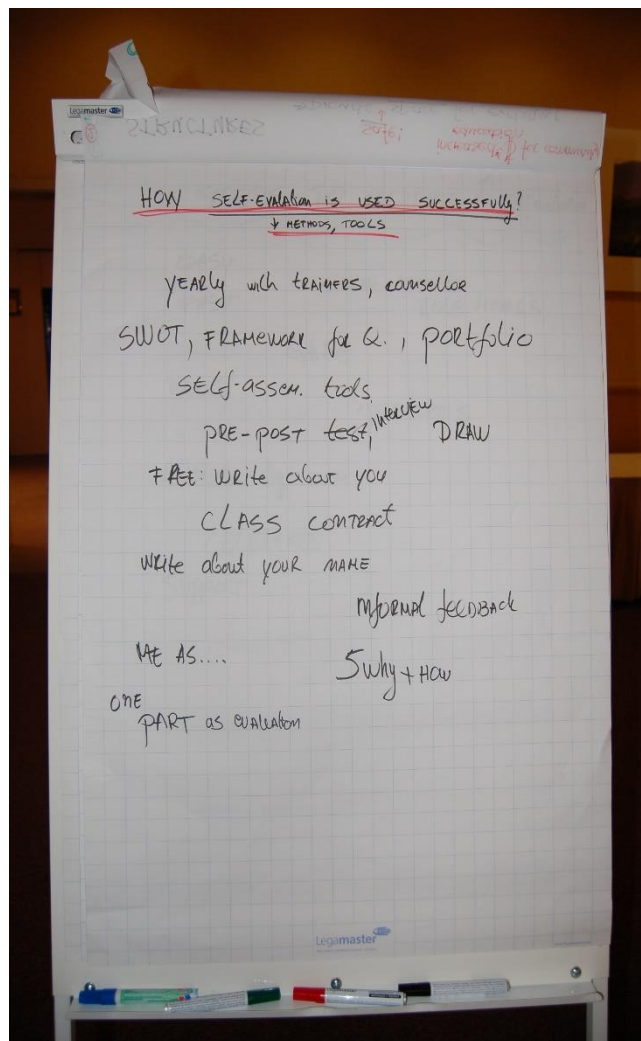 Legamaster
STRUCTURES
safe!
education
increased for community
HOW SELF-EVALATION IS USED SUCCESSFULLY?
↓ METHODS, TOOLS
YEARLY with TRAINERS, counsellor
SWOT, FRAMEWORK for Q., PORTfolio
SELF-assem. tools
PRE-POST test, INTERVIEW DRAW
FREE: WRite about you
CLASS CONTRACT
WRite about YOUR NAME
INfORMAL fEEDBACK
ME AS....
5 Why + HOW
ONE
PART as evaluation
Legamaster